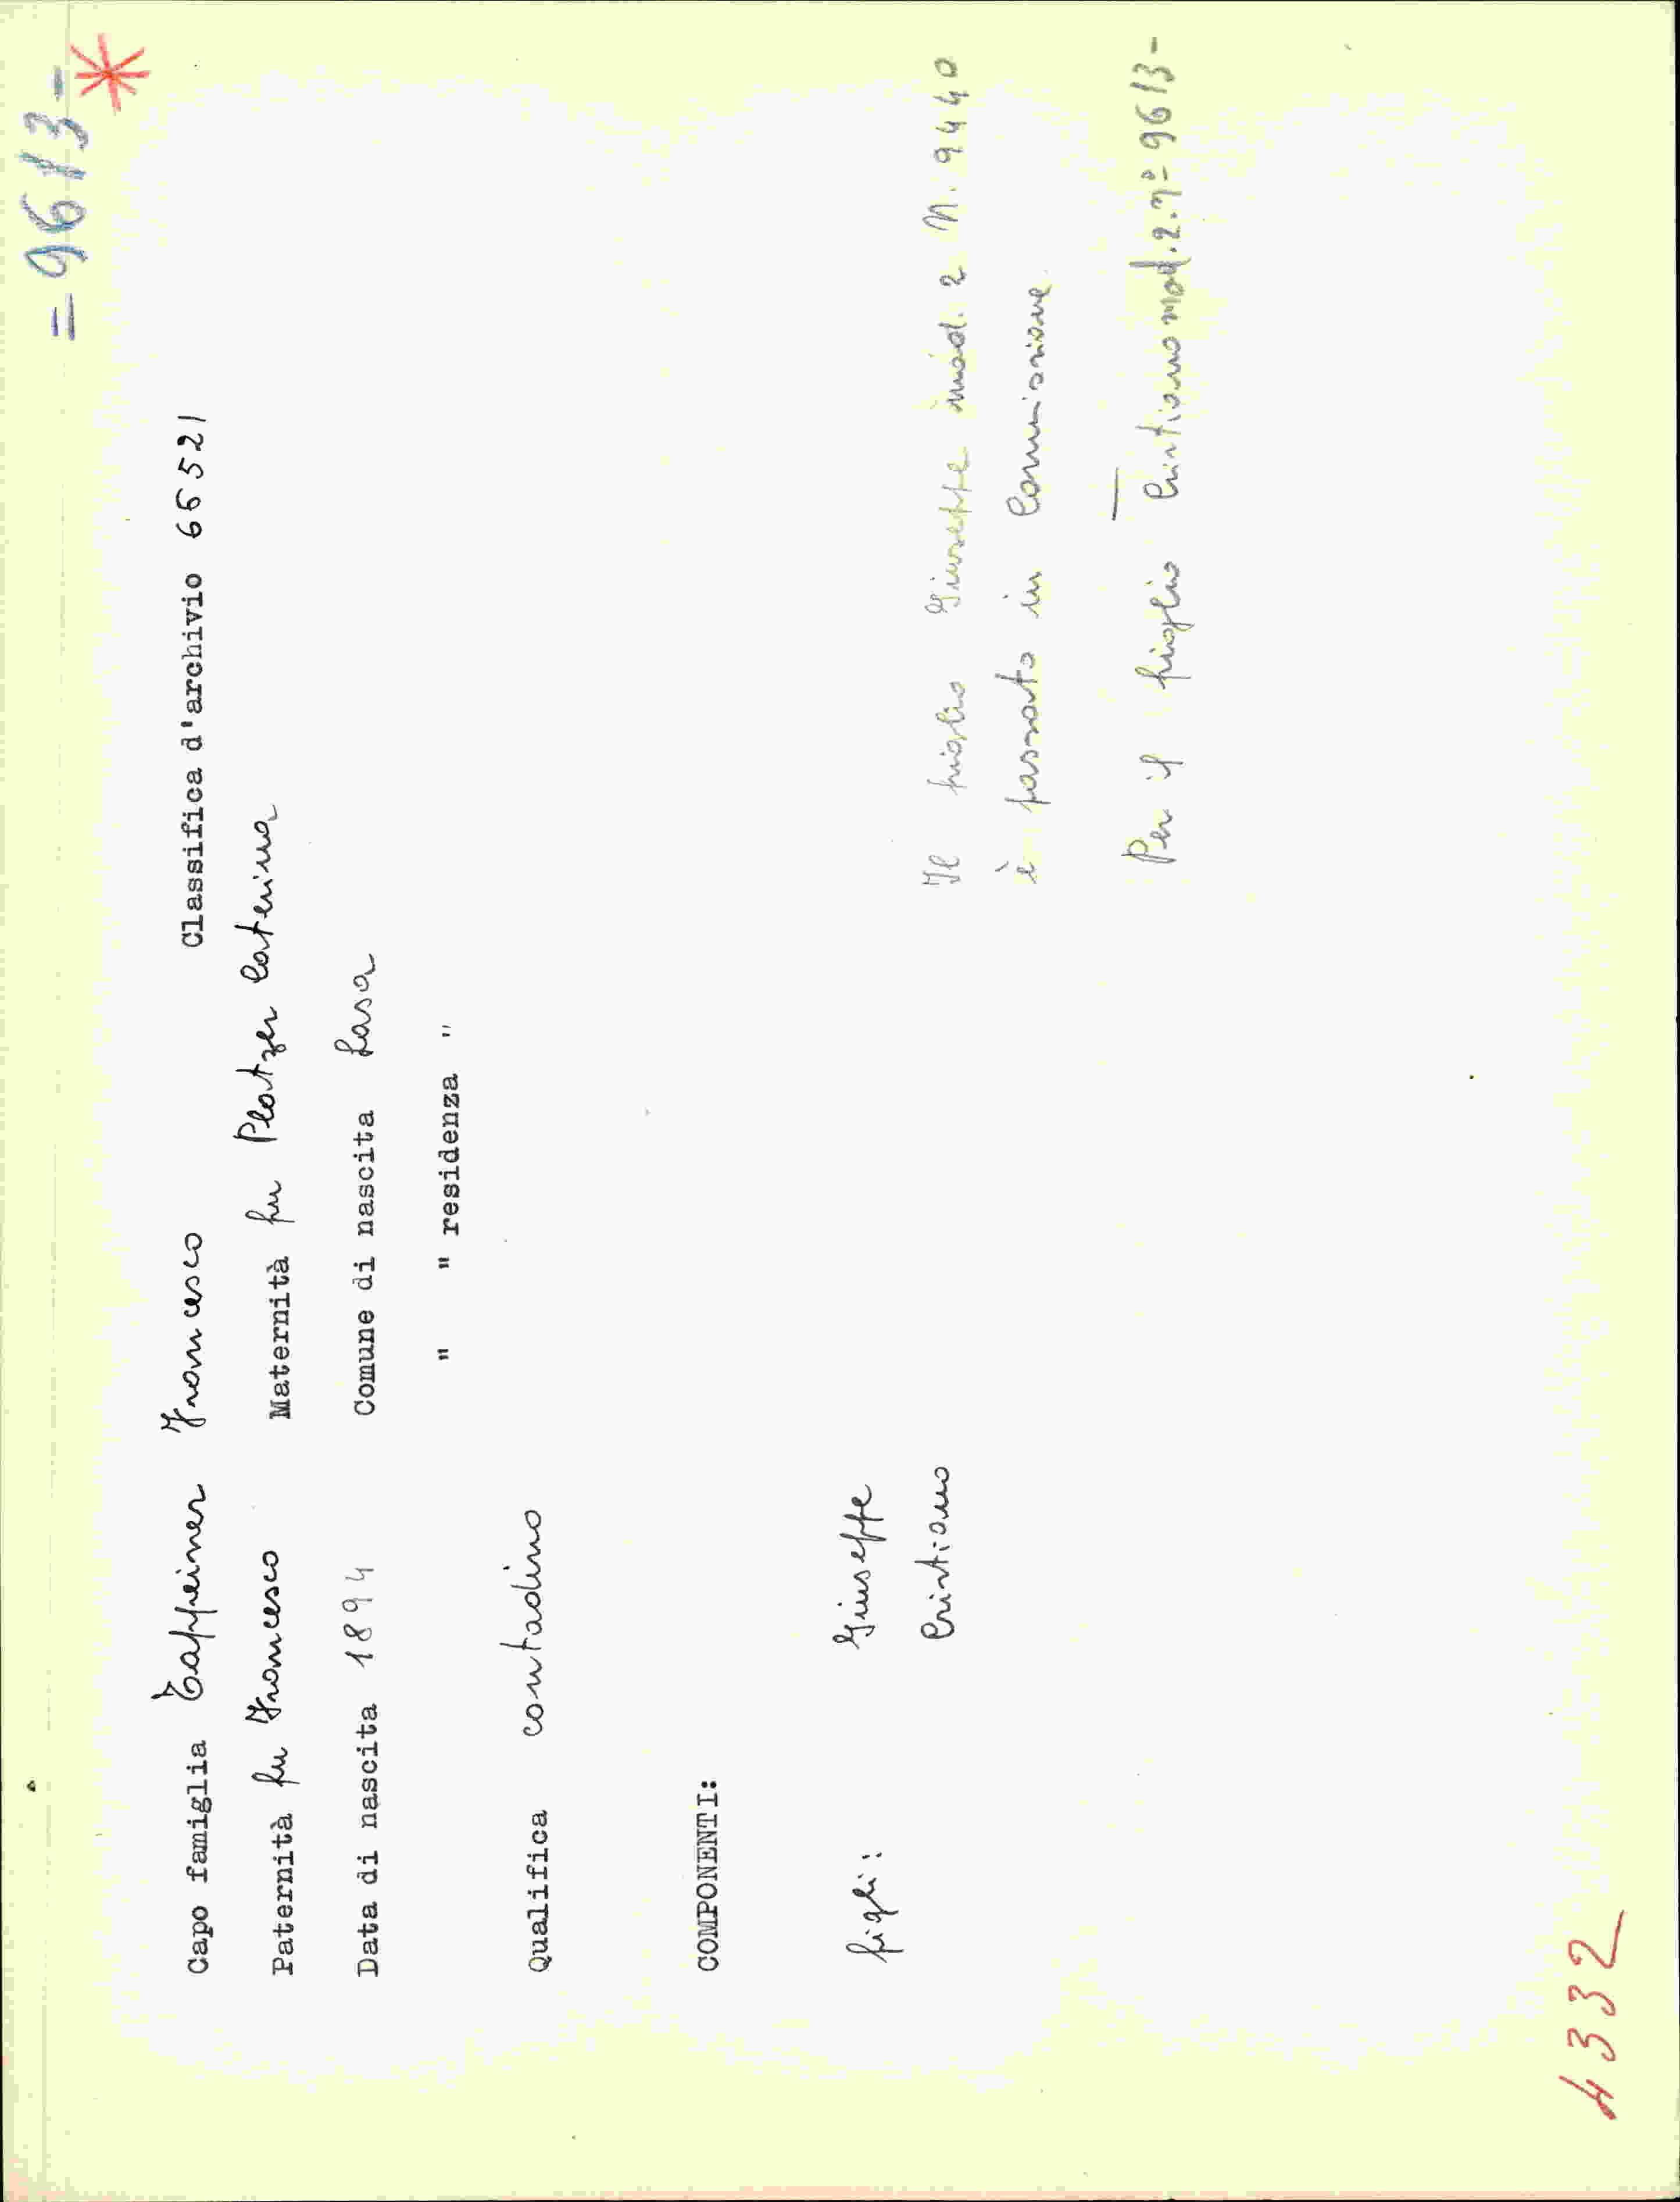 = 9613 -
Capo famiglia Tappeiner Francesco Classifica d'archivio 66521
Paternità fu Francesco Maternità fu Platzer Caterina
Data di nascita 1894 Comune di nascita Lasa
" " residenza "
Qualifica contadino
COMPONENTI:
figli: Giuseppe
Cristiano
Il figlio Giuseppe mod. 2 N. 9440
è passato in Commissione.
Per il figlio Cristiano mod. 2. nº 9613 -
4332